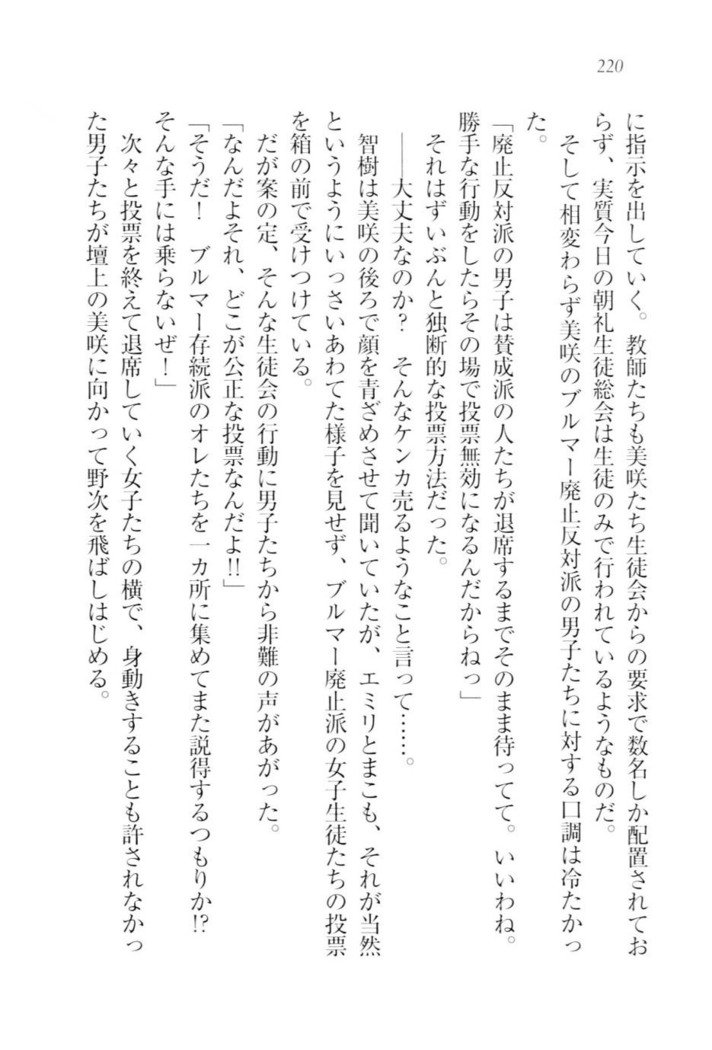 220
に指示を出していく。教師たちも美咲たち生徒会からの要求で数名しか配置されてお
らず、実質今日の朝礼生徒総会は生徒のみで行われているようなものだ。
そして相変わらず美咲のブルマー廃止反対派の男子たちに対する口調は冷たかっ
た。
「廃止反対派の男子は賛成派の人たちが退席するまでそのまま待ってて。いいわね。
勝手な行動をしたらその場で投票無効になるんだからねっ」
それはずいぶんと独断的な投票方法だった。
――大丈夫なのか？　そんなケンカ売るようなこと言って……。
智樹は美咲の後ろで顔を青ざめさせて聞いていたが、エミリとまこも、それが当然
というようにいっさいあわてた様子を見せず、ブルマー廃止派の女子生徒たちの投票
を箱の前で受けつけている。
だが案の定、そんな生徒会の行動に男子たちから非難の声があがった。
「なんだよそれ、どこが公正な投票なんだよ!!」
「そうだ！　ブルマー存続派のオレたちを一カ所に集めてまた説得するつもりか!?
そんな手には乗らないぜ！」
次々と投票を終えて退席していく女子たちの横で、身動きすることも許されなかっ
た男子たちが壇上の美咲に向かって野次を飛ばしはじめる。